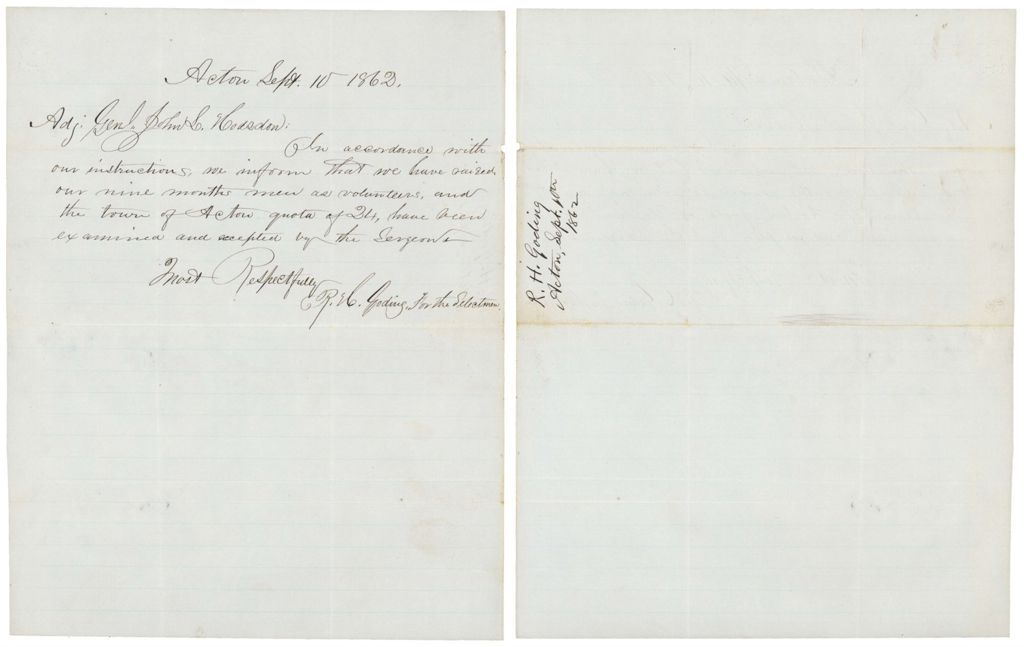 Acton Sept. 10 1862.
Adj. Genl. John L. Hodsdon:
In accordance with
our instructions, we inform that we have raised
our nine months men as volunteers, and
the town of Acton quota of 24, have been
examined and acepted by the Sergeons
Most Respectfully
R. H. Goding, For the Selectmen.
R. H. Goding
Acton, Sept. 10th
1862